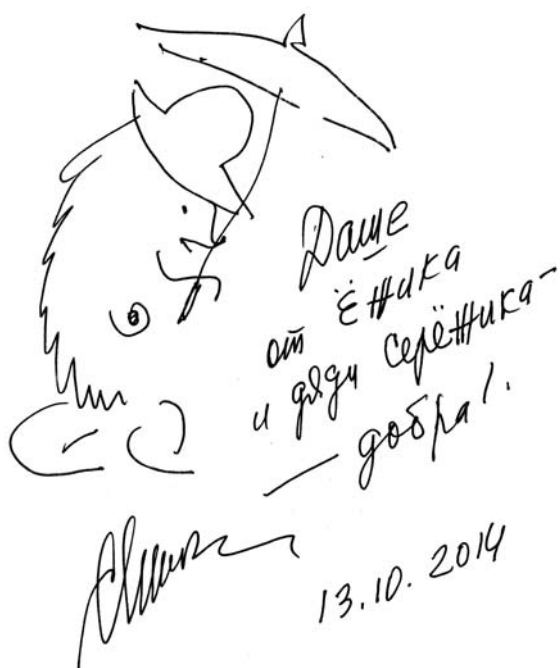 Даше
от ёжика
и дяди серёжика –
— добра!
13.10.2014